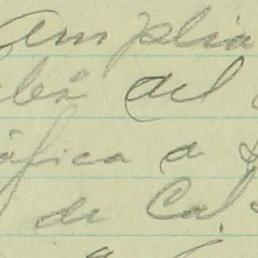 amplia
del
áfica a
de Cal.